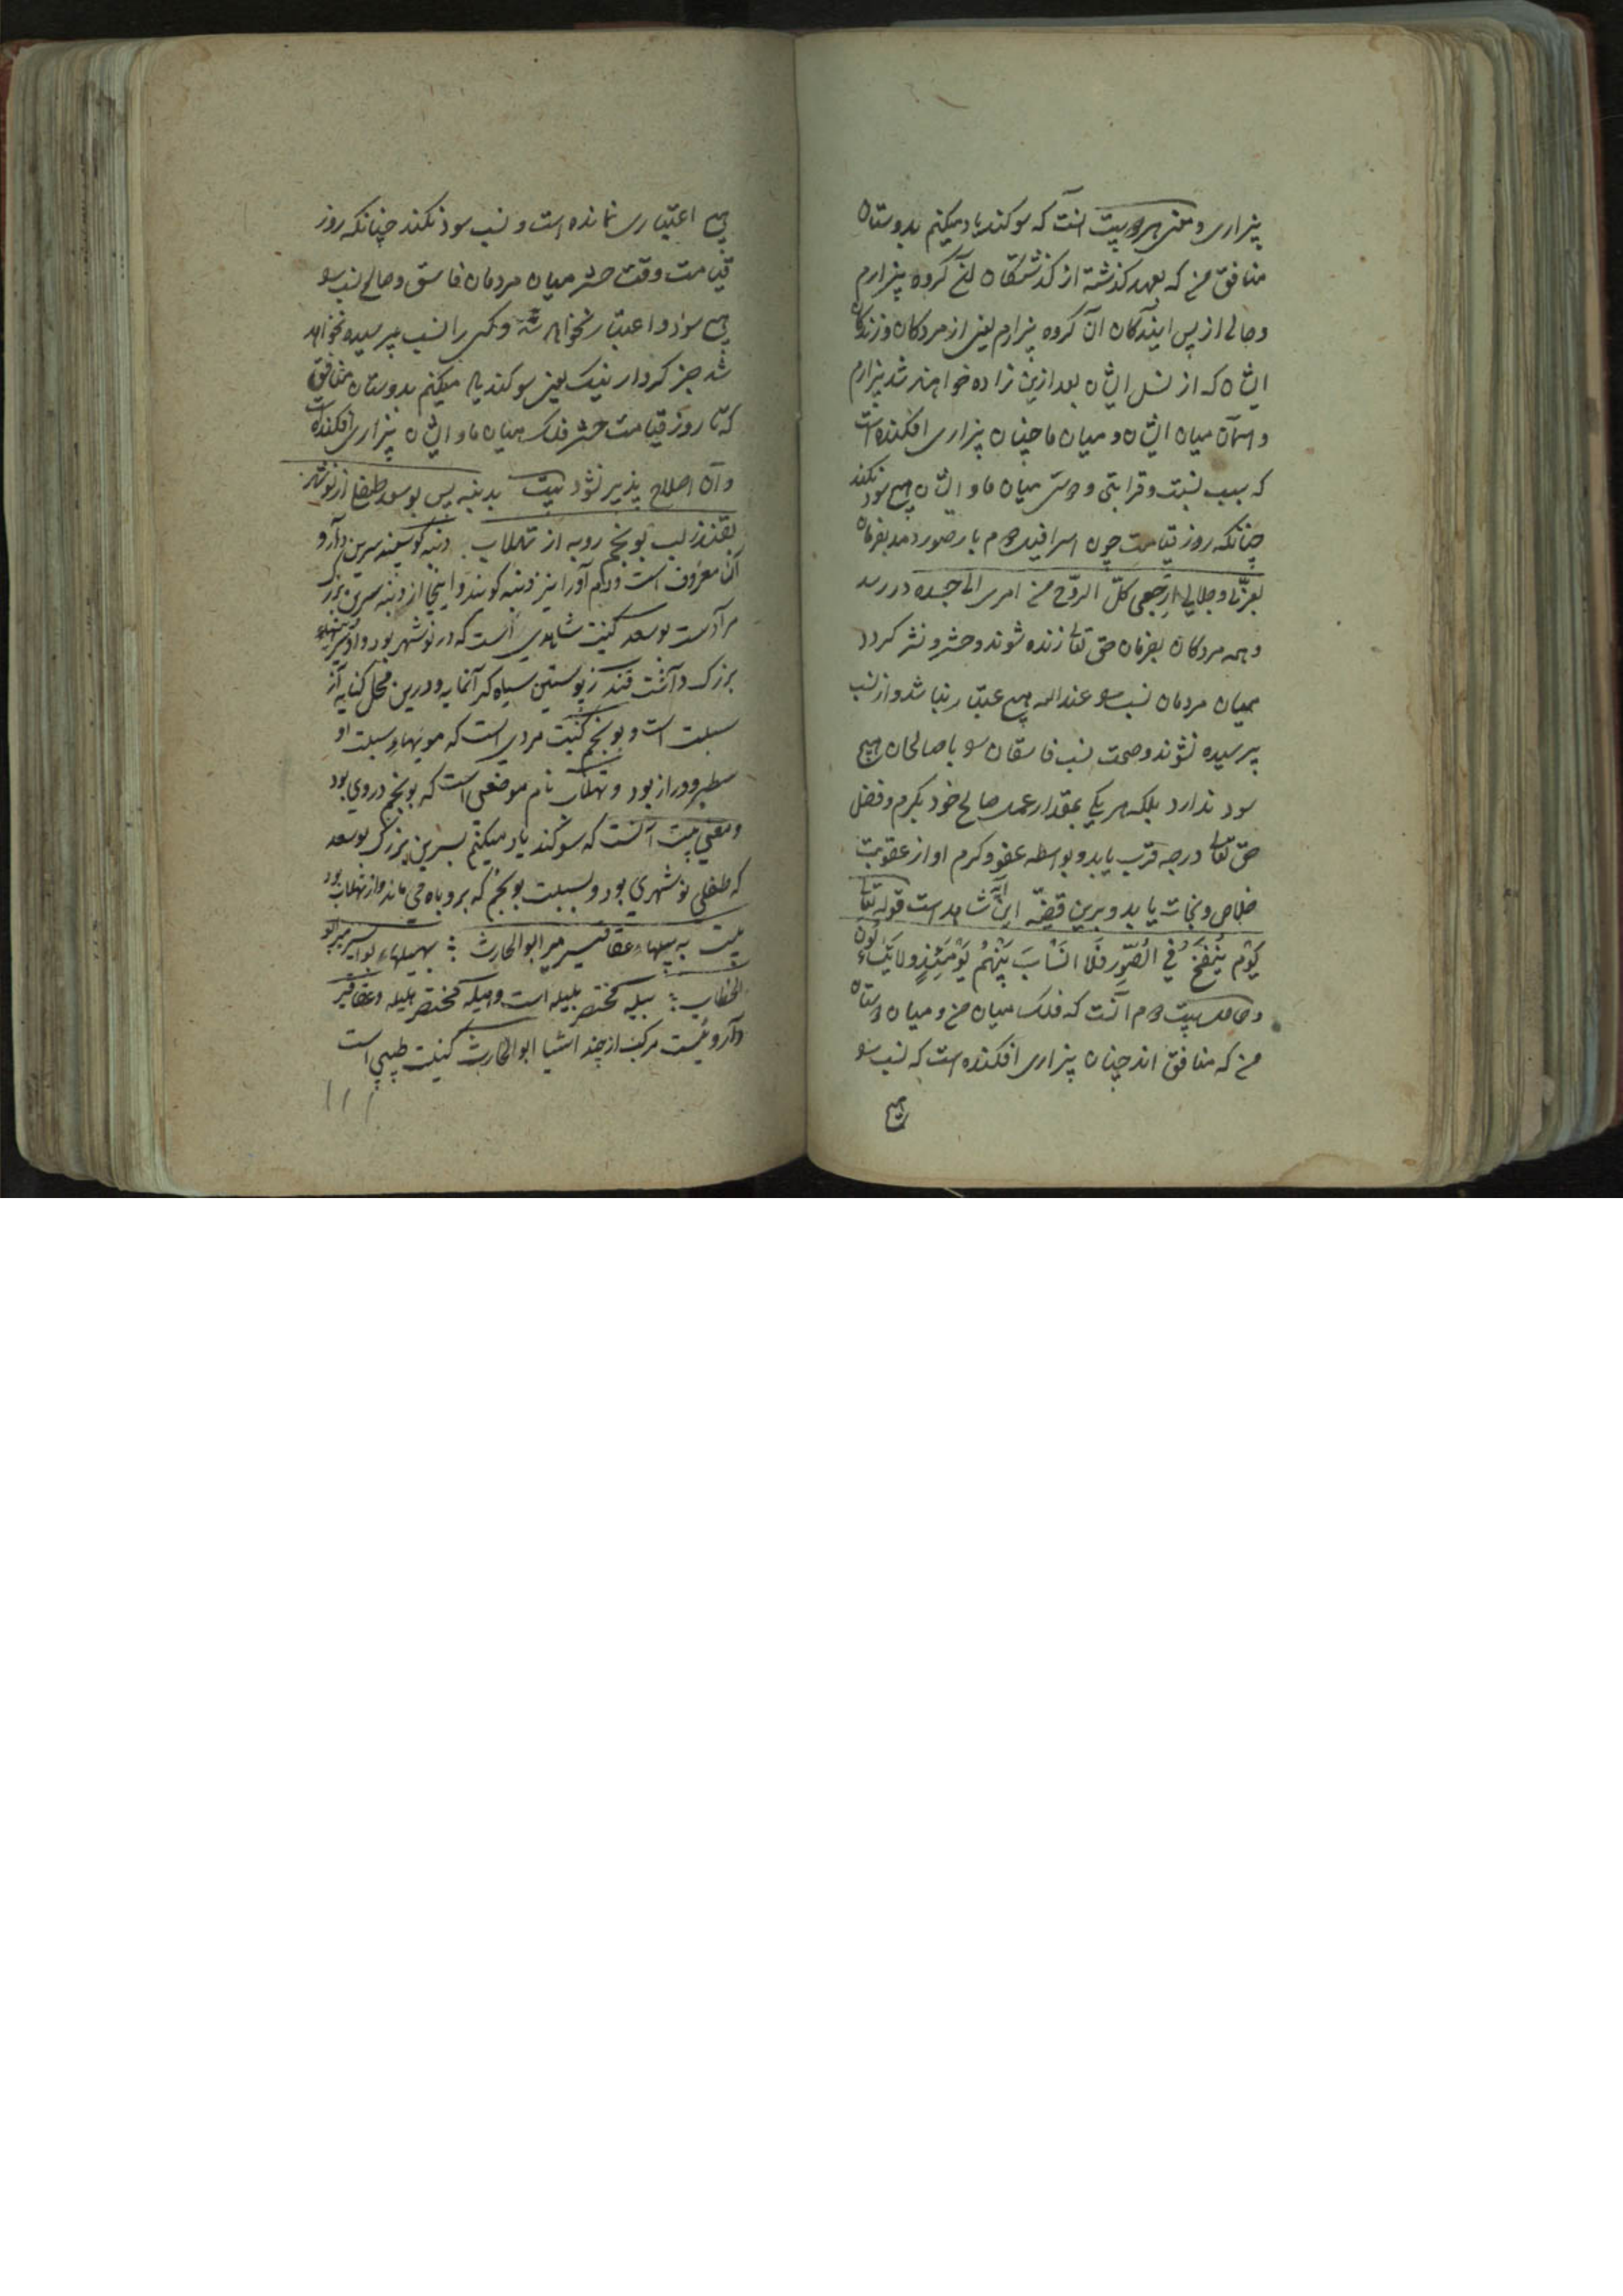 بیزاری و معنی هر دو بیت آنست که سوکند یاد میکنم بدوستان
منافق من که بعهد گذشته از گذشتگان آن گروه بیزارم
و حالی از پس آیندگان آن گروه بیزارم یعنی از مردگان و زندگان
ایشان که از نسل ایشان بعد ازین زاده خواهند شد بیزارم
و آسمان میان ایشان و میان ما چنان بیزاری افکنده است
که سبب نسبت و قرابتی و دوستی میان ما و ایشان هیچ سود نکند
چنانکه روز قیامت چون اسرافیل دوم بار صور دمد بفرمان
بعزتی و جلالی ارجعی کل الروح من امری الی جسده در رسد
و همه مردگان بفرمان حق تعالی زنده شوند و حشر و نشر گردد
میان مردمان نسب عند الله هیچ اعتبار نباشد و از نسب
پرسیده نشوند و صحت نسب فاسقان با صالحان هیچ
سود ندارد بلکه هر یکی بمقدار عمل صالح خود بکرم و فضل
حق تعالی درجه قرب یابد و بواسطه عفو و کرم او از عقوبت
خلاص و نجات یابد و برین قضیه این آیة شاهد است قوله تعالی
یَوْم یُنْفَخُ فِی الصُّورِ فَلَا انْسَابَ بَیْنَهُمْ یَوْمَئِذٍ وَلَا یَتَسَاءَلُونَ
و حاصل بیت دوم آنست که فلک میان من و میان دوستان
من که منافق اند چنان بیزاری افکنده است که نسب
هیچ
هیچ اعتباری نمانده است و نسب سود نکند چنانکه روز
قیامت وقت حشر میان مردمان فاسق و صالح نسب
هیچ سود و اعتبار نخواهد شد و کسی را نسب پرسیده نخواهد
شد جز کردار نیک یعنی سوکند یاد میکنم بدوستان منافق
که تا روز قیامت حشر فلک میان ما و ایشان بیزاری افکنده است
و آن اصلاح پذیر نشود بیت بدنبه پس بوسعد طفل از نوشهر
بقندز لب بونجم روبه از تهلاب دنبه گوسپند سرین دارد و
آن معروف است و دم او را نیز دنبه گویند و اینجا از دنبه سرین بزرگ
مرادست بوسعد کنیت شاهدی است که در نوشهر بود و او سرینهای
بزرگ داشت قندز پوستین سیاه گرانمایه و درین محل کنایه از
سبلت است و بونجم کنیت مردی است که مویهای سبلت او
سطبر و دراز بود و تهلاب نام موضعی است که بونجم در وی بود
و معنی بیت آنست که سوکند یاد میکنم بسرین بزرگ بوسعد
که طفلی نوشهری بود و بسبلت بونجم که بروباه می ماند و از تهلاب بود
بیت به بیلهاء عقاقیر میر ابو الحارث : بهمیلهاء
الخطاب : بیله مختصر بلیله است و هیله مختصر هلیله و عقاقیر
دارویست مرکب از چند اشیا ابو الحارث کنیت طبیبی است